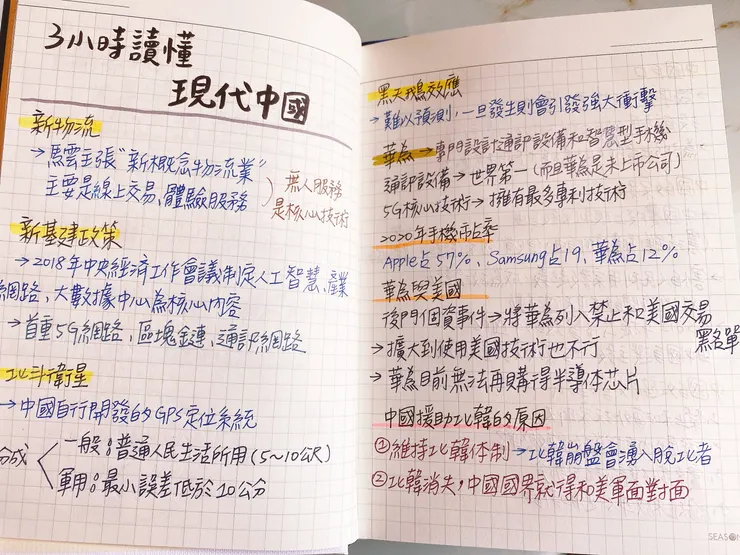 3小時讀懂
現代中國
新物流
→馬雲主張"新概念物流業"
主要是線上交易、體驗服務
無人服務
是核心技術
新基建政策
→2018年中央經濟工作會議制定人工智慧、產業
網路、大數據中心為核心內容
→首重5G網路、區塊鏈、通訊網路
北斗衛星
→中國自行開發的GPS定位系統
分成
一般：普通人民生活所用(5~10公尺)
軍用：最小誤差低於10公分
黑天鵝效應
→難以預測，一旦發生則會引發強大衝擊
華為→專門設計通訊設備和智慧型手機
通訊設備→世界第一(而且華為是未上市公司)
5G核心技術→擁有最多專利技術
2020年手機市占率
Apple占57%、Samsung占19、華為占12%
華為與美國
後門個資事件→將華為列入禁止和美國交易
黑名單
→擴大到使用美國技術也不行
→華為目前無法再購得半導体芯片
中國援助北韓的原因
①維持北韓体制→北韓崩盤會湧入脫北者
②北韓消失，中國國界就得和美軍面對面
SEASON